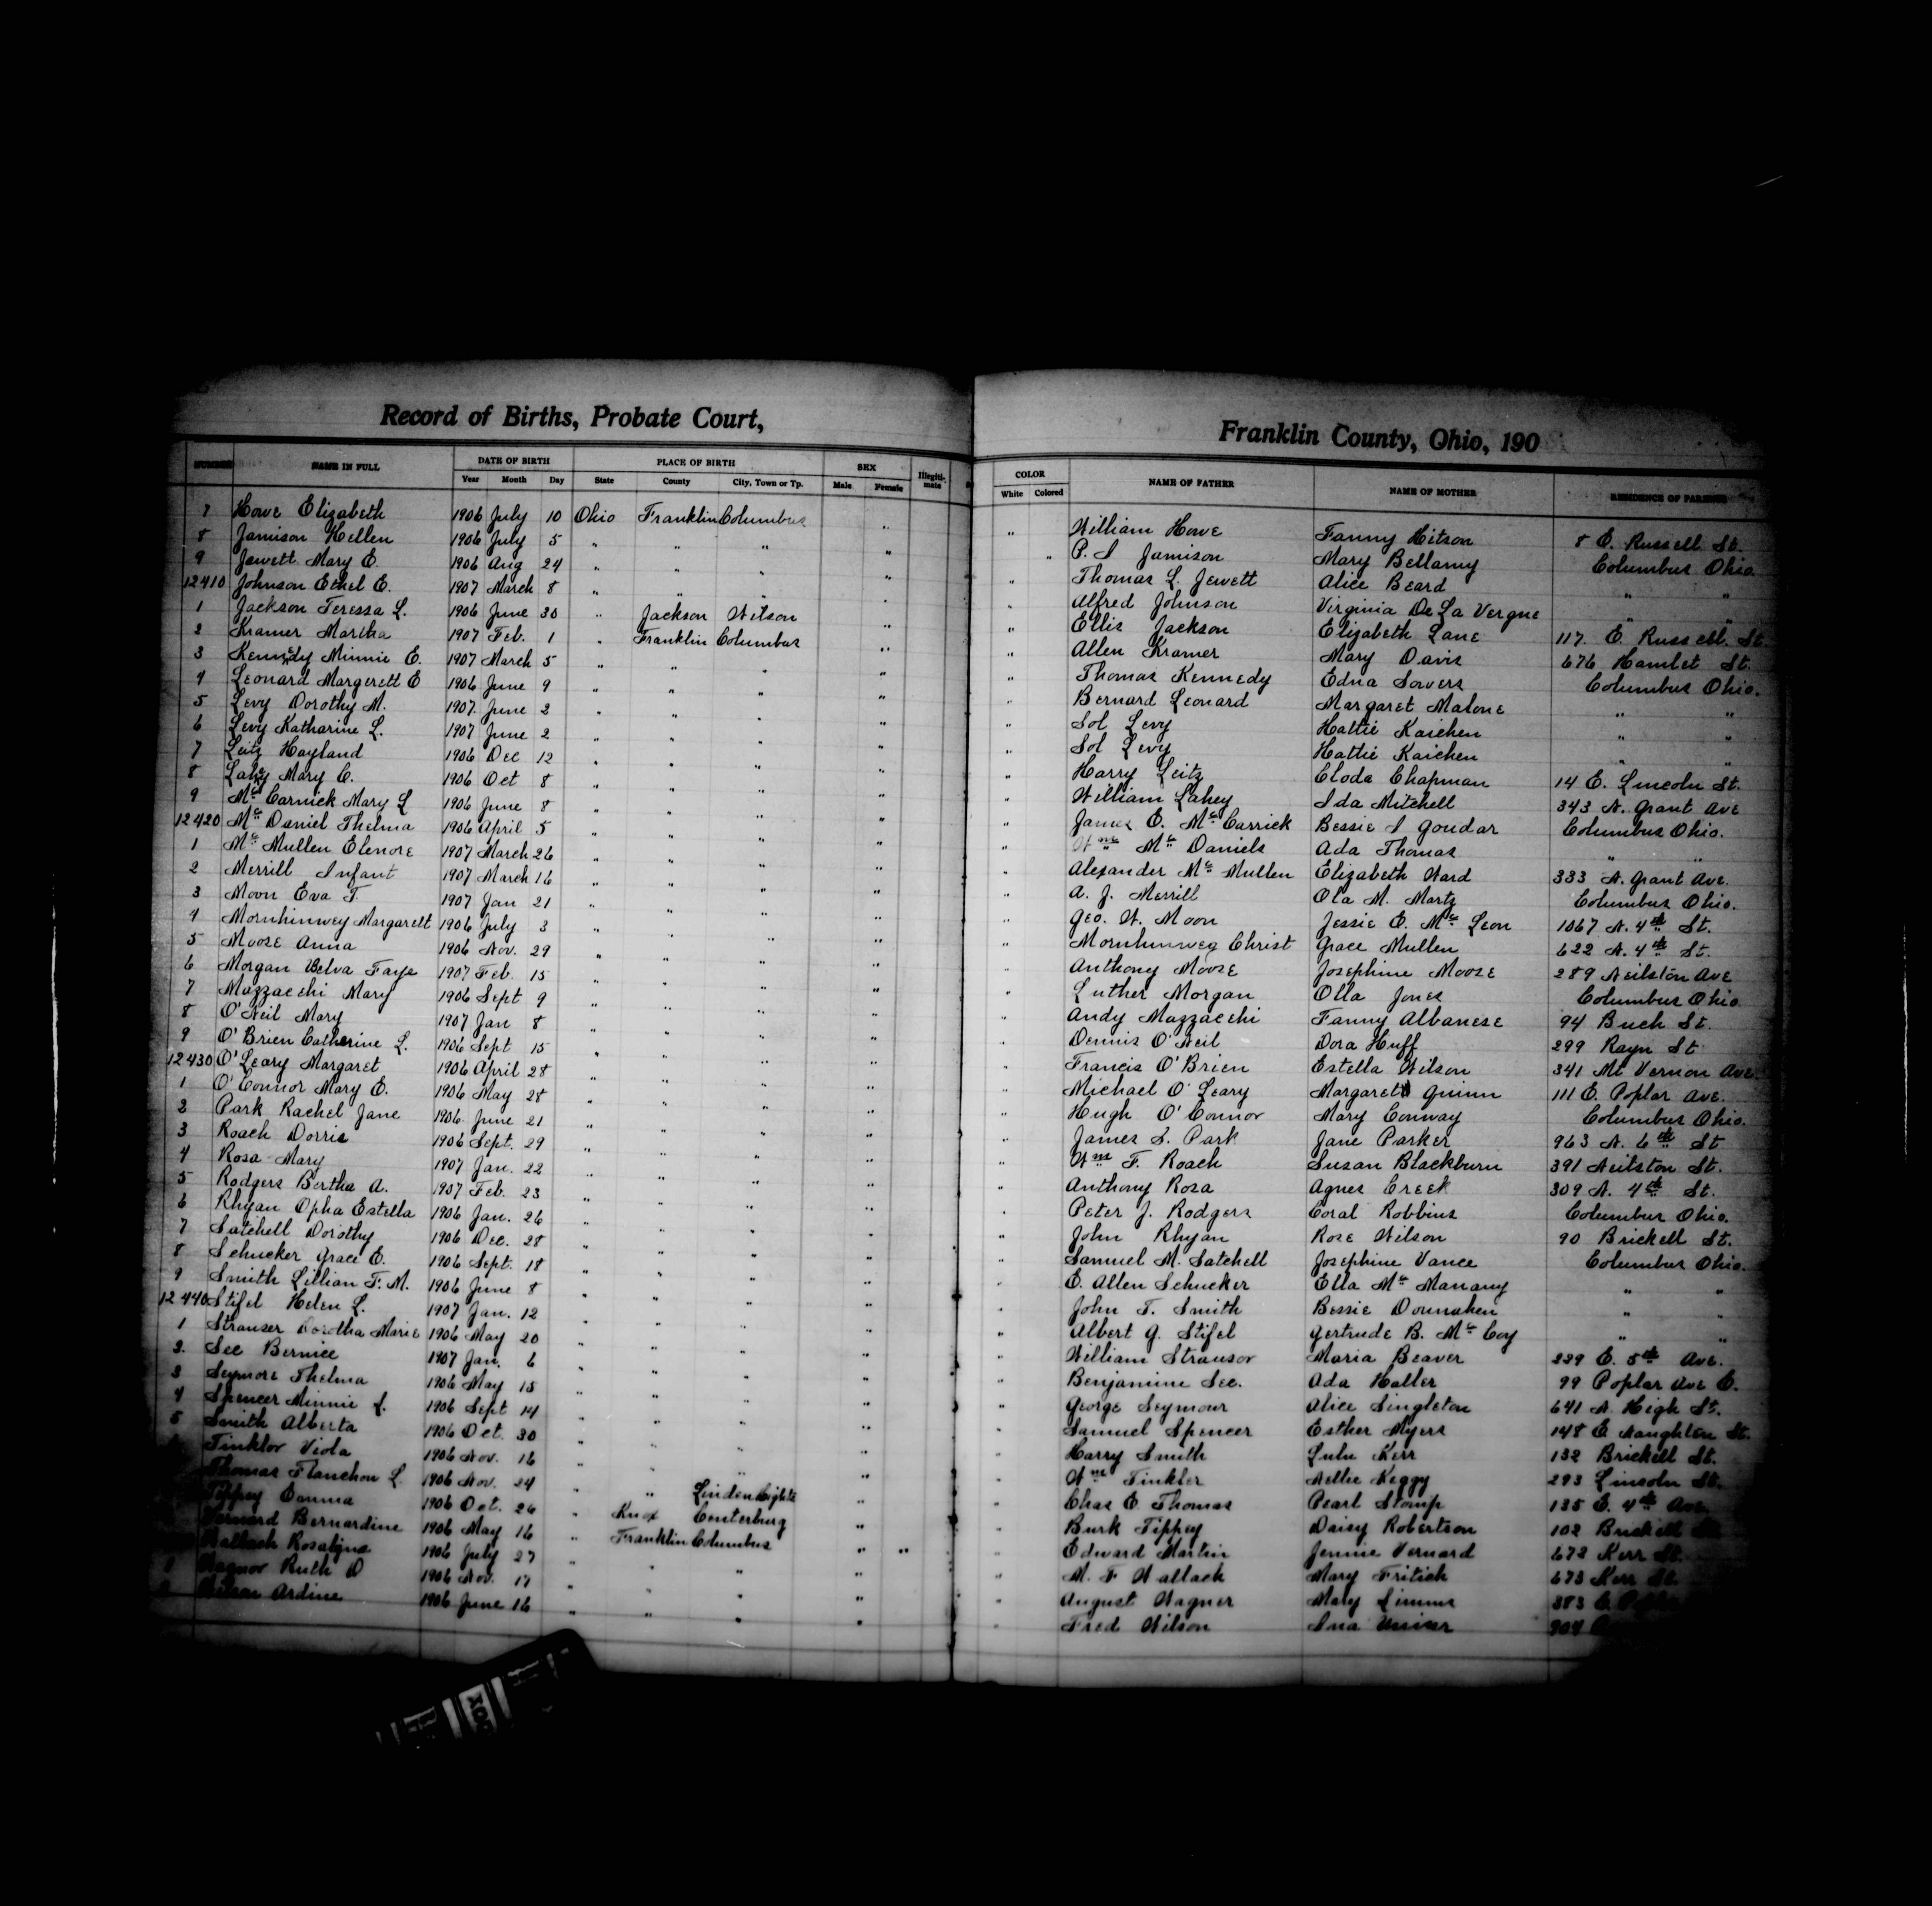 Record of Births, Probate Court, Franklin County, Ohio, 190
NUMBER NAME IN FULL DATE OF BIRTH PLACE OF BIRTH SEX Illegiti-mate COLOR NAME OF FATHER NAME OF MOTHER RESIDENCE OF PARENTS
Year Month Day State County City, Town or Tp. Male Female White Colored
7 Howe Elizabeth 1906 July 10 Ohio Franklin Columbus " " William Howe Fanny Hitson 8 E. Russell St.
8 Jamison Hellen 1906 July 5 " " " " " P. I Jamison Mary Bellamy Columbus Ohio
9 Jewett Mary E. 1906 Aug 24 " " " " " Thomas L. Jewett Alice Beard " "
12410 Johnson Ethel E. 1907 March 8 " " " " " Alfred Johnson Virginia De La Vergne " "
1 Jackson Teressa L. 1906 June 30 " Jackson Wilson " " Ellis Jackson Elizabeth Lane 117. E. Russell. St.
2 Kramer Martha 1907 Feb. 1 " Franklin Columbus " " Allen Kramer Mary Davis 676 Hamlet St.
3 Kennedy Minnie E. 1907 March 5 " " " " " Thomas Kennedy Edna Sowers Columbus Ohio.
4 Leonard Margerett E 1906 June 9 " " " " " Bernard Leonard Margaret Malone " "
5 Levy Dorothy M. 1907 June 2 " " " " " Sol Levy Hattie Kaichen " "
6 Levy Katharine L. 1907 June 2 " " " " " Sol Levy Hattie Kaichen " "
7 Leitz Hayland 1906 Dec 12 " " " " " Harry Leitz Cloda Chapman 14 E. Lincoln St.
8 Lahey Mary C. 1906 Oct 8 " " " " " William Lahey Ida Mitchell 343 N. Grant Ave
9 Mc Carnick Mary L 1906 June 8 " " " " " James E. Mc Carrick Bessie I Goudar Columbus Ohio.
12420 Mc Daniel Thelma 1906 April 5 " " " " " Wm Mc Daniels Ada Thomas " "
1 Mc Mullen Elenore 1907 March 26 " " " " " Alexander Mc Mullen Elizabeth Ward 333 N. Grant Ave.
2 Merrill Infant 1907 March 16 " " " " " A. J. Merrill Ola M. Martz Columbus Ohio.
3 Moon Eva F. 1907 Jan 21 " " " " " Geo. W. Moon Jessie E. Mc Leon 1067 N. 4th St.
4 Mornhinwey Margarett 1906 July 3 " " " " " Mornhinweg Christ Grace Mullen 622 N. 4th St.
5 Moose Anna 1906 Nov. 29 " " " " " Anthony Moose Josephine Moose 289 Neilston Ave
6 Morgan Velva Faye 1907 Feb. 15 " " " " " Luther Morgan Olla Jones Columbus Ohio
7 Mazzacchi Mary 1906 Sept 9 " " " " " Andy Mazzacchi Fanny Albanese 94 Buch St.
8 O'Neil Mary 1907 Jan 8 " " " " " Dennis O'Neil Dora Huff 299 Rayn St
9 O'Brien Catherine L. 1906 Sept 15 " " " " " Francis O'Brien Estella Wilson 341 Mt Vernon Ave
12430 O'Leary Margaret 1906 April 28 " " " " " Michael O'Leary Margaret Quinn 111 E. Poplar Ave.
1 O'Connor Mary E. 1906 May 28 " " " " " Hugh O'Connor Mary Conway Columbus Ohio.
2 Park Rachel Jane 1906 June 21 " " " " " James S. Park Jane Parker 963 N. 6th St
3 Roach Dorris 1906 Sept. 29 " " " " " Wm F. Roach Susan Blackburn 391 Neilston St.
4 Rosa Mary 1907 Jan. 22 " " " " " Anthony Rosa Agnes Creek 309 N. 4th St.
5 Rodgers Bertha A. 1907 Feb. 23 " " " " " Peter J. Rodgers Coral Robbins Columbus Ohio.
6 Rhyan Opha Estella 1906 Jan. 26 " " " " " John Rhyan Rose Wilson 90 Brickell St.
7 Satchell Dorothy 1906 Dec. 28 " " " " " Samuel M. Satchell Josephine Vance Columbus Ohio.
8 Schucker Grace E. 1906 Sept. 18 " " " " " E. Allen Schucker Ella Mc Manamy " "
9 Smith Lillian F. M. 1906 June 8 " " " " " John F. Smith Bessie Dounahen " "
12440 Stifel Helen L. 1907 Jan. 12 " " " " " Albert G. Stifel Gertrude B. Mc Coy " "
1 Strauser Dorotha Marie 1906 May 20 " " " " " William Strausor Maria Beaver 229 E. 5th Ave.
2. See Bernice 1907 Jan. 6 " " " " " Benjamine See. Ada Haller 99 Poplar Ave E.
3 Seymore Thelma 1906 May 15 " " " " " George Seymour Alice Singleton 641 N. High St.
4 Spencer Minnie L. 1906 Sept 14 " " " " " Samuel Spencer Esther Myers 148 E Naughten St.
5 Smith Alberta 1906 Oct. 30 " " " " " Harry Smith Lulu Kerr 132 Brickell St.
Tinklor Viola 1906 Nov. 16 " " " " " Wm Tinkler Nellie Keggy 293 Lincoln St.
Thomas Flanchon L. 1906 Nov. 24 " " Linden Hights " " Chas E. Thomas Pearl Stomp 135 E. 4th Ave
Tippey Emma 1906 Oct. 26 " Knox Centerburg " " Burk Tippey Daisy Robertson 102 Brickell
Vernard Bernardine 1906 May 16 " Franklin Columbus " " " Edward Martin Jennie Vernard 672 Kerr St.
Wallach Rosalyne 1906 July 27 " " " " " M. F. Wallach Mary Fritsch 673 Kerr St.
Wagnor Ruth D 1906 Nov. 17 " " " " " August Wagner Mary Simms 383 E.
Ardine 1906 June 16 " " " " " Fred Wilson Ina